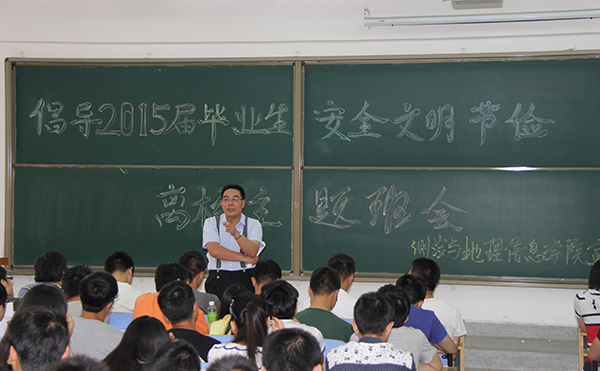 倡导2015届毕业生 安全文明节俭
离校主题班会
测绘与地理信息学院宣